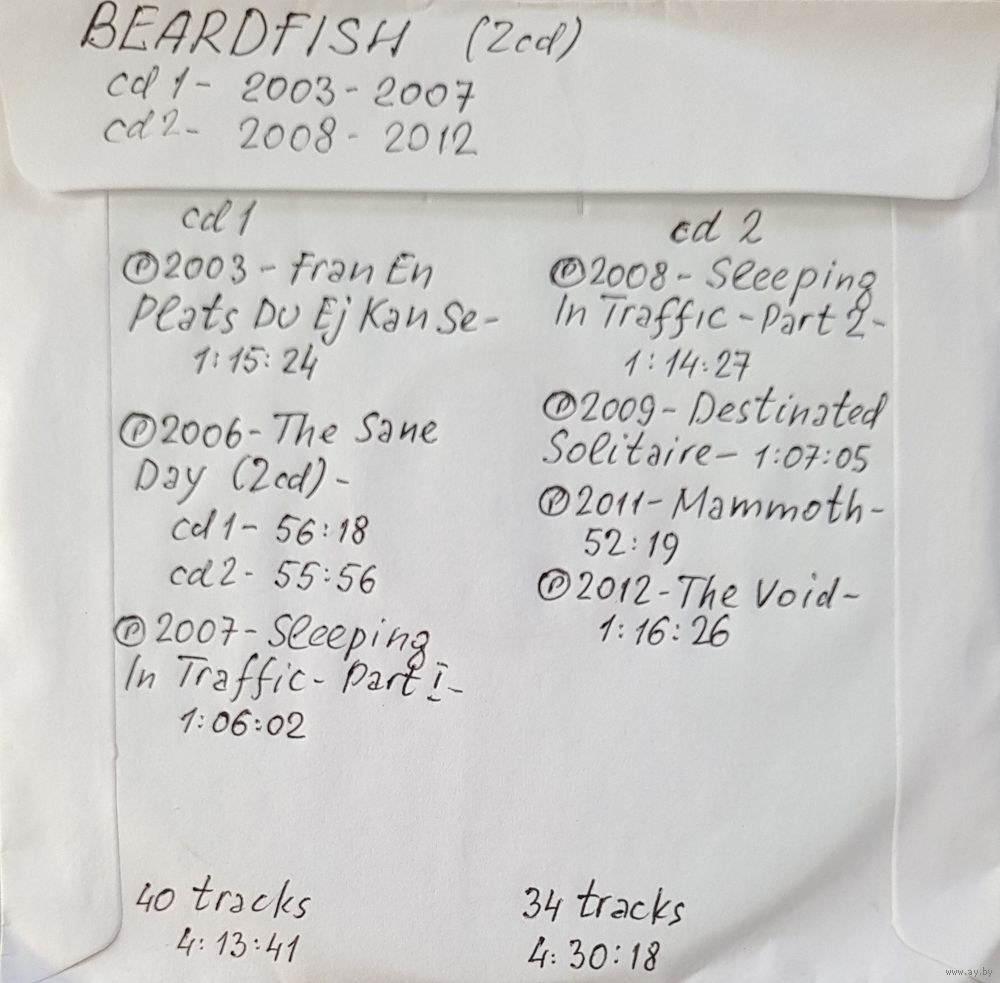 BEARDFISH (2cd)
cd 1 - 2003 - 2007
cd 2 - 2008 - 2012
cd 1
℗2003 - Fran En
Plats Du Ej Kan Se -
1:15:24
℗2006 - The Sane
Day (2cd) -
cd 1 - 56:18
cd 2 - 55:56
℗2007 - Sleeping
In Traffic - Part I -
1:06:02
40 tracks
4:13:41
cd 2
℗2008 - Sleeping
In Traffic - Part 2 -
1:14:27
℗2009 - Destinated
Solitaire - 1:07:05
℗2011 - Mammoth -
52:19
℗2012 - The Void -
1:16:26
34 tracks
4:30:18
www.ay.by